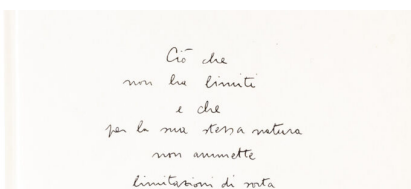 Ciò che
non ha limiti
e che
per la sua stessa natura
non ammette
limitazioni di sorta